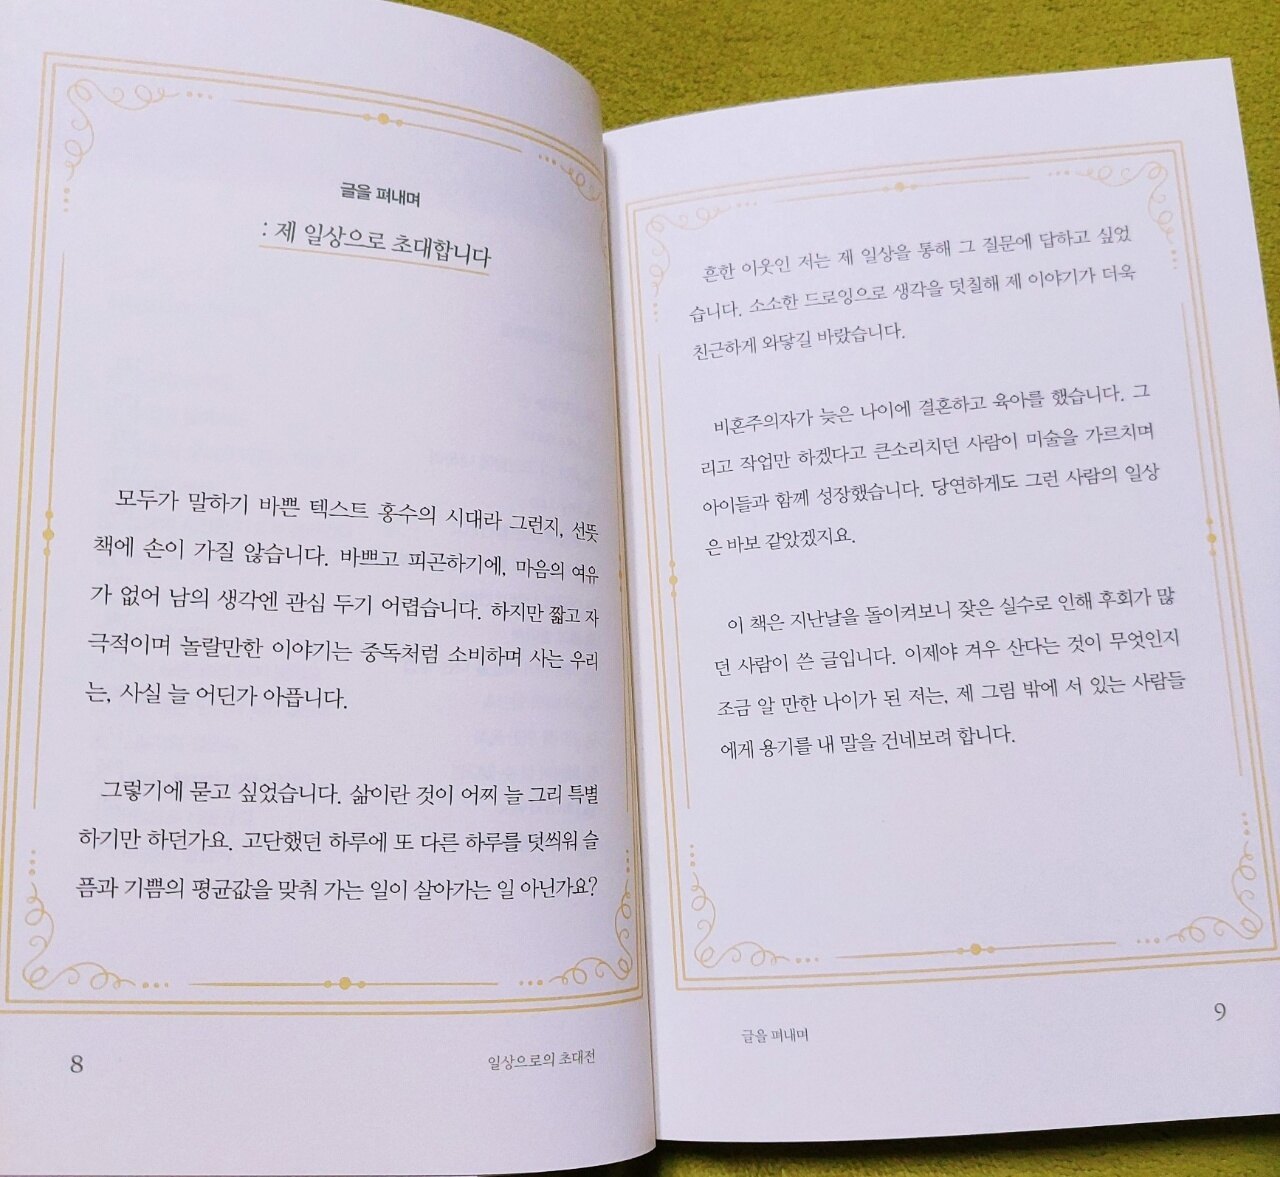 글을 펴내며
: 제 일상으로 초대합니다
모두가 말하기 바쁜 텍스트 홍수의 시대라 그런지, 선뜻
책에 손이 가질 않습니다. 바쁘고 피곤하기에, 마음의 여유
가 없어 남의 생각엔 관심 두기 어렵습니다. 하지만 짧고 자
극적이며 놀랄만한 이야기는 중독처럼 소비하며 사는 우리
는, 사실 늘 어딘가 아픕니다.
그렇기에 묻고 싶었습니다. 삶이란 것이 어찌 늘 그리 특별
하기만 하던가요. 고단했던 하루에 또 다른 하루를 덧씌워 슬
픔과 기쁨의 평균값을 맞춰 가는 일이 살아가는 일 아닌가요?
8
일상으로의 초대전
흔한 이웃인 저는 제 일상을 통해 그 질문에 답하고 싶었
습니다. 소소한 드로잉으로 생각을 덧칠해 제 이야기가 더욱
친근하게 와닿길 바랐습니다.
비혼주의자가 늦은 나이에 결혼하고 육아를 했습니다. 그
리고 작업만 하겠다고 큰소리치던 사람이 미술을 가르치며
아이들과 함께 성장했습니다. 당연하게도 그런 사람의 일상
은 바보 같았겠지요.
이 책은 지난날을 돌이켜보니 잦은 실수로 인해 후회가 많
던 사람이 쓴 글입니다. 이제야 겨우 산다는 것이 무엇인지
조금 알 만한 나이가 된 저는, 제 그림 밖에 서 있는 사람들
에게 용기를 내 말을 건네보려 합니다.
글을 펴내며
9